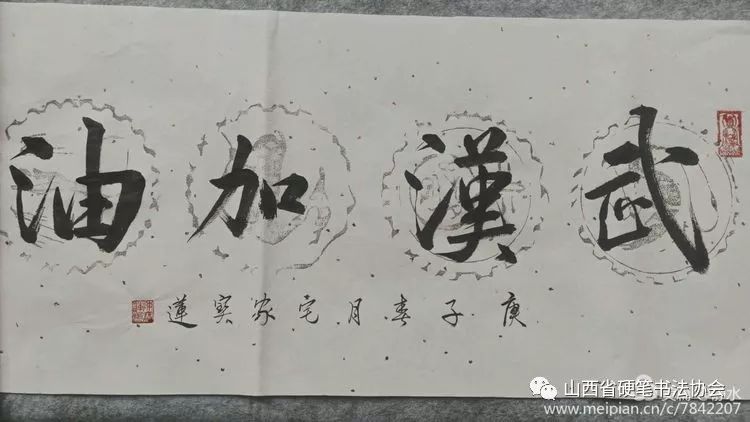 武漢加油
庚子春月宅家蓮
山西省硬笔书法协会
www.meipian.cn/c/7842207